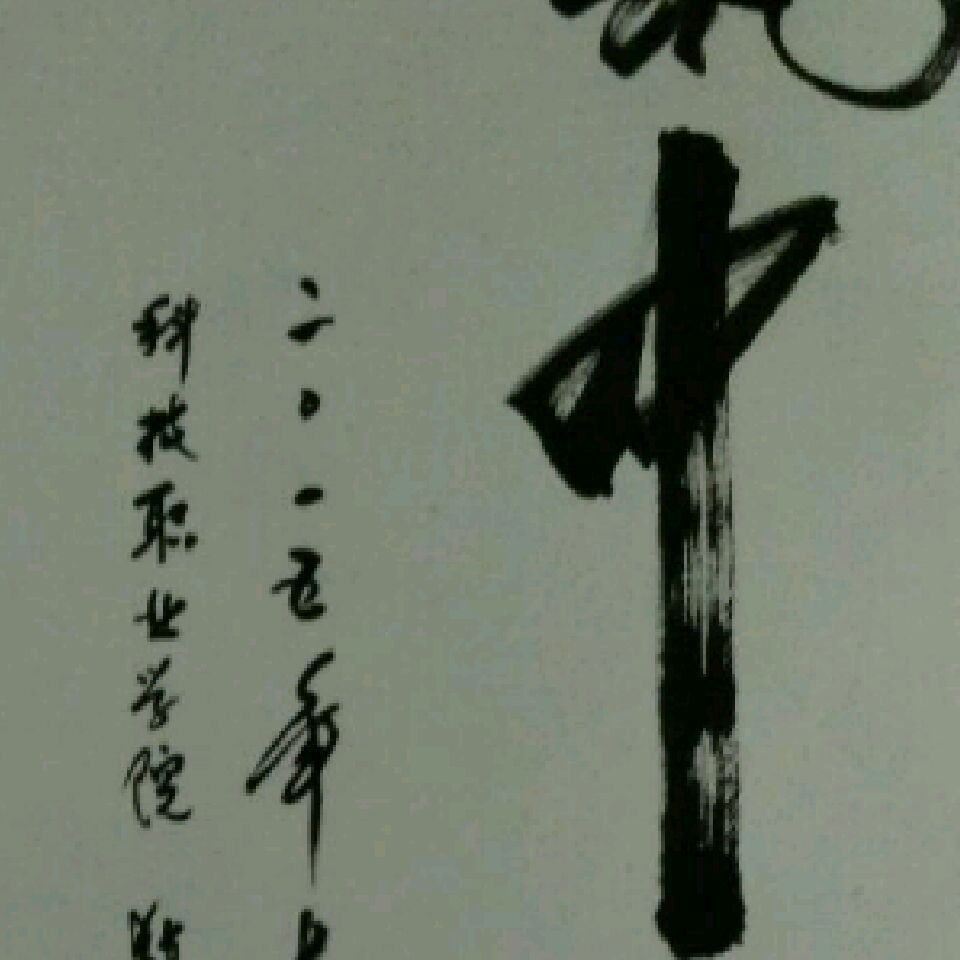 中
二〇一五年
科技职业学院